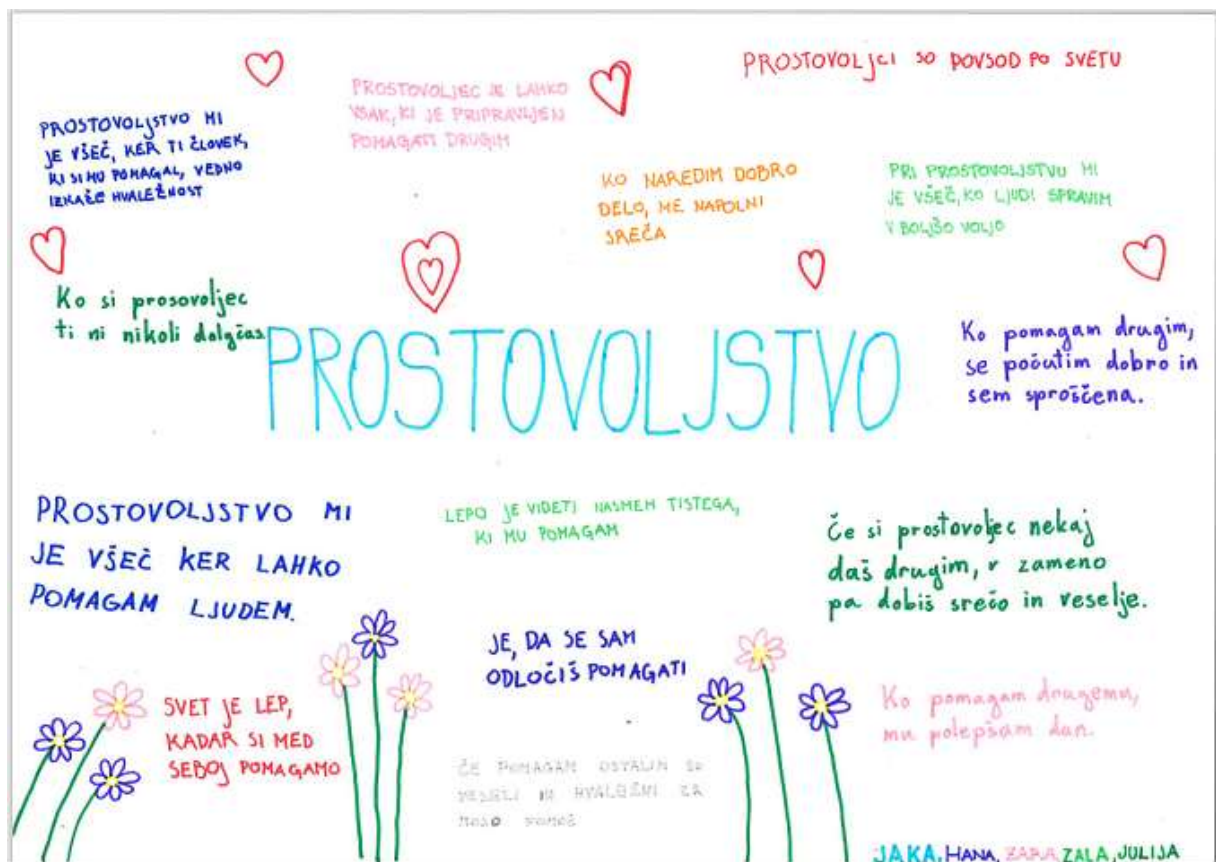 PROSTOVOLJCI SO POVSOD PO SVETU
PROSTOVOLJEC JE LAHKO
VSAK, KI JE PRIPRAVLJEN
POMAGATI DRUGIM
PROSTOVOLJSTVO MI
JE VŠEČ, KER TI ČLOVEK,
KI SI MU POMAGAL, VEDNO
IZKAŽE HVALEŽNOST
KO NAREDIM DOBRO
DELO, ME NAPOLNI
SREČA
PRI PROSTOVOLJSTVU MI
JE VŠEČ, KO LJUDI SPRAVIM
V BOLJŠO VOLJO
Ko si prosovoljec
ti ni nikoli dolgčas.
PROSTOVOLJSTVO
Ko pomagam drugim,
se počutim dobro in
sem sproščena.
PROSTOVOLJSTVO MI
JE VŠEČ KER LAHKO
POMAGAM LJUDEM.
LEPO JE VIDETI NASMEH TISTEGA,
KI MU POMAGAM
Če si prostovoljec nekaj
daš drugim, v zameno
pa dobiš srečo in veselje.
JE, DA SE SAM
ODLOČIŠ POMAGATI
SVET JE LEP,
KADAR SI MED
SEBOJ POMAGAMO
Ko pomagam drugemu,
mu polepšam dan.
ČE POMAGAM OSTALIM SO
VESELI IN HVALEŽNI ZA
MOJO POMOČ
JAKA, HANA, ZARA, ZALA, JULIJA